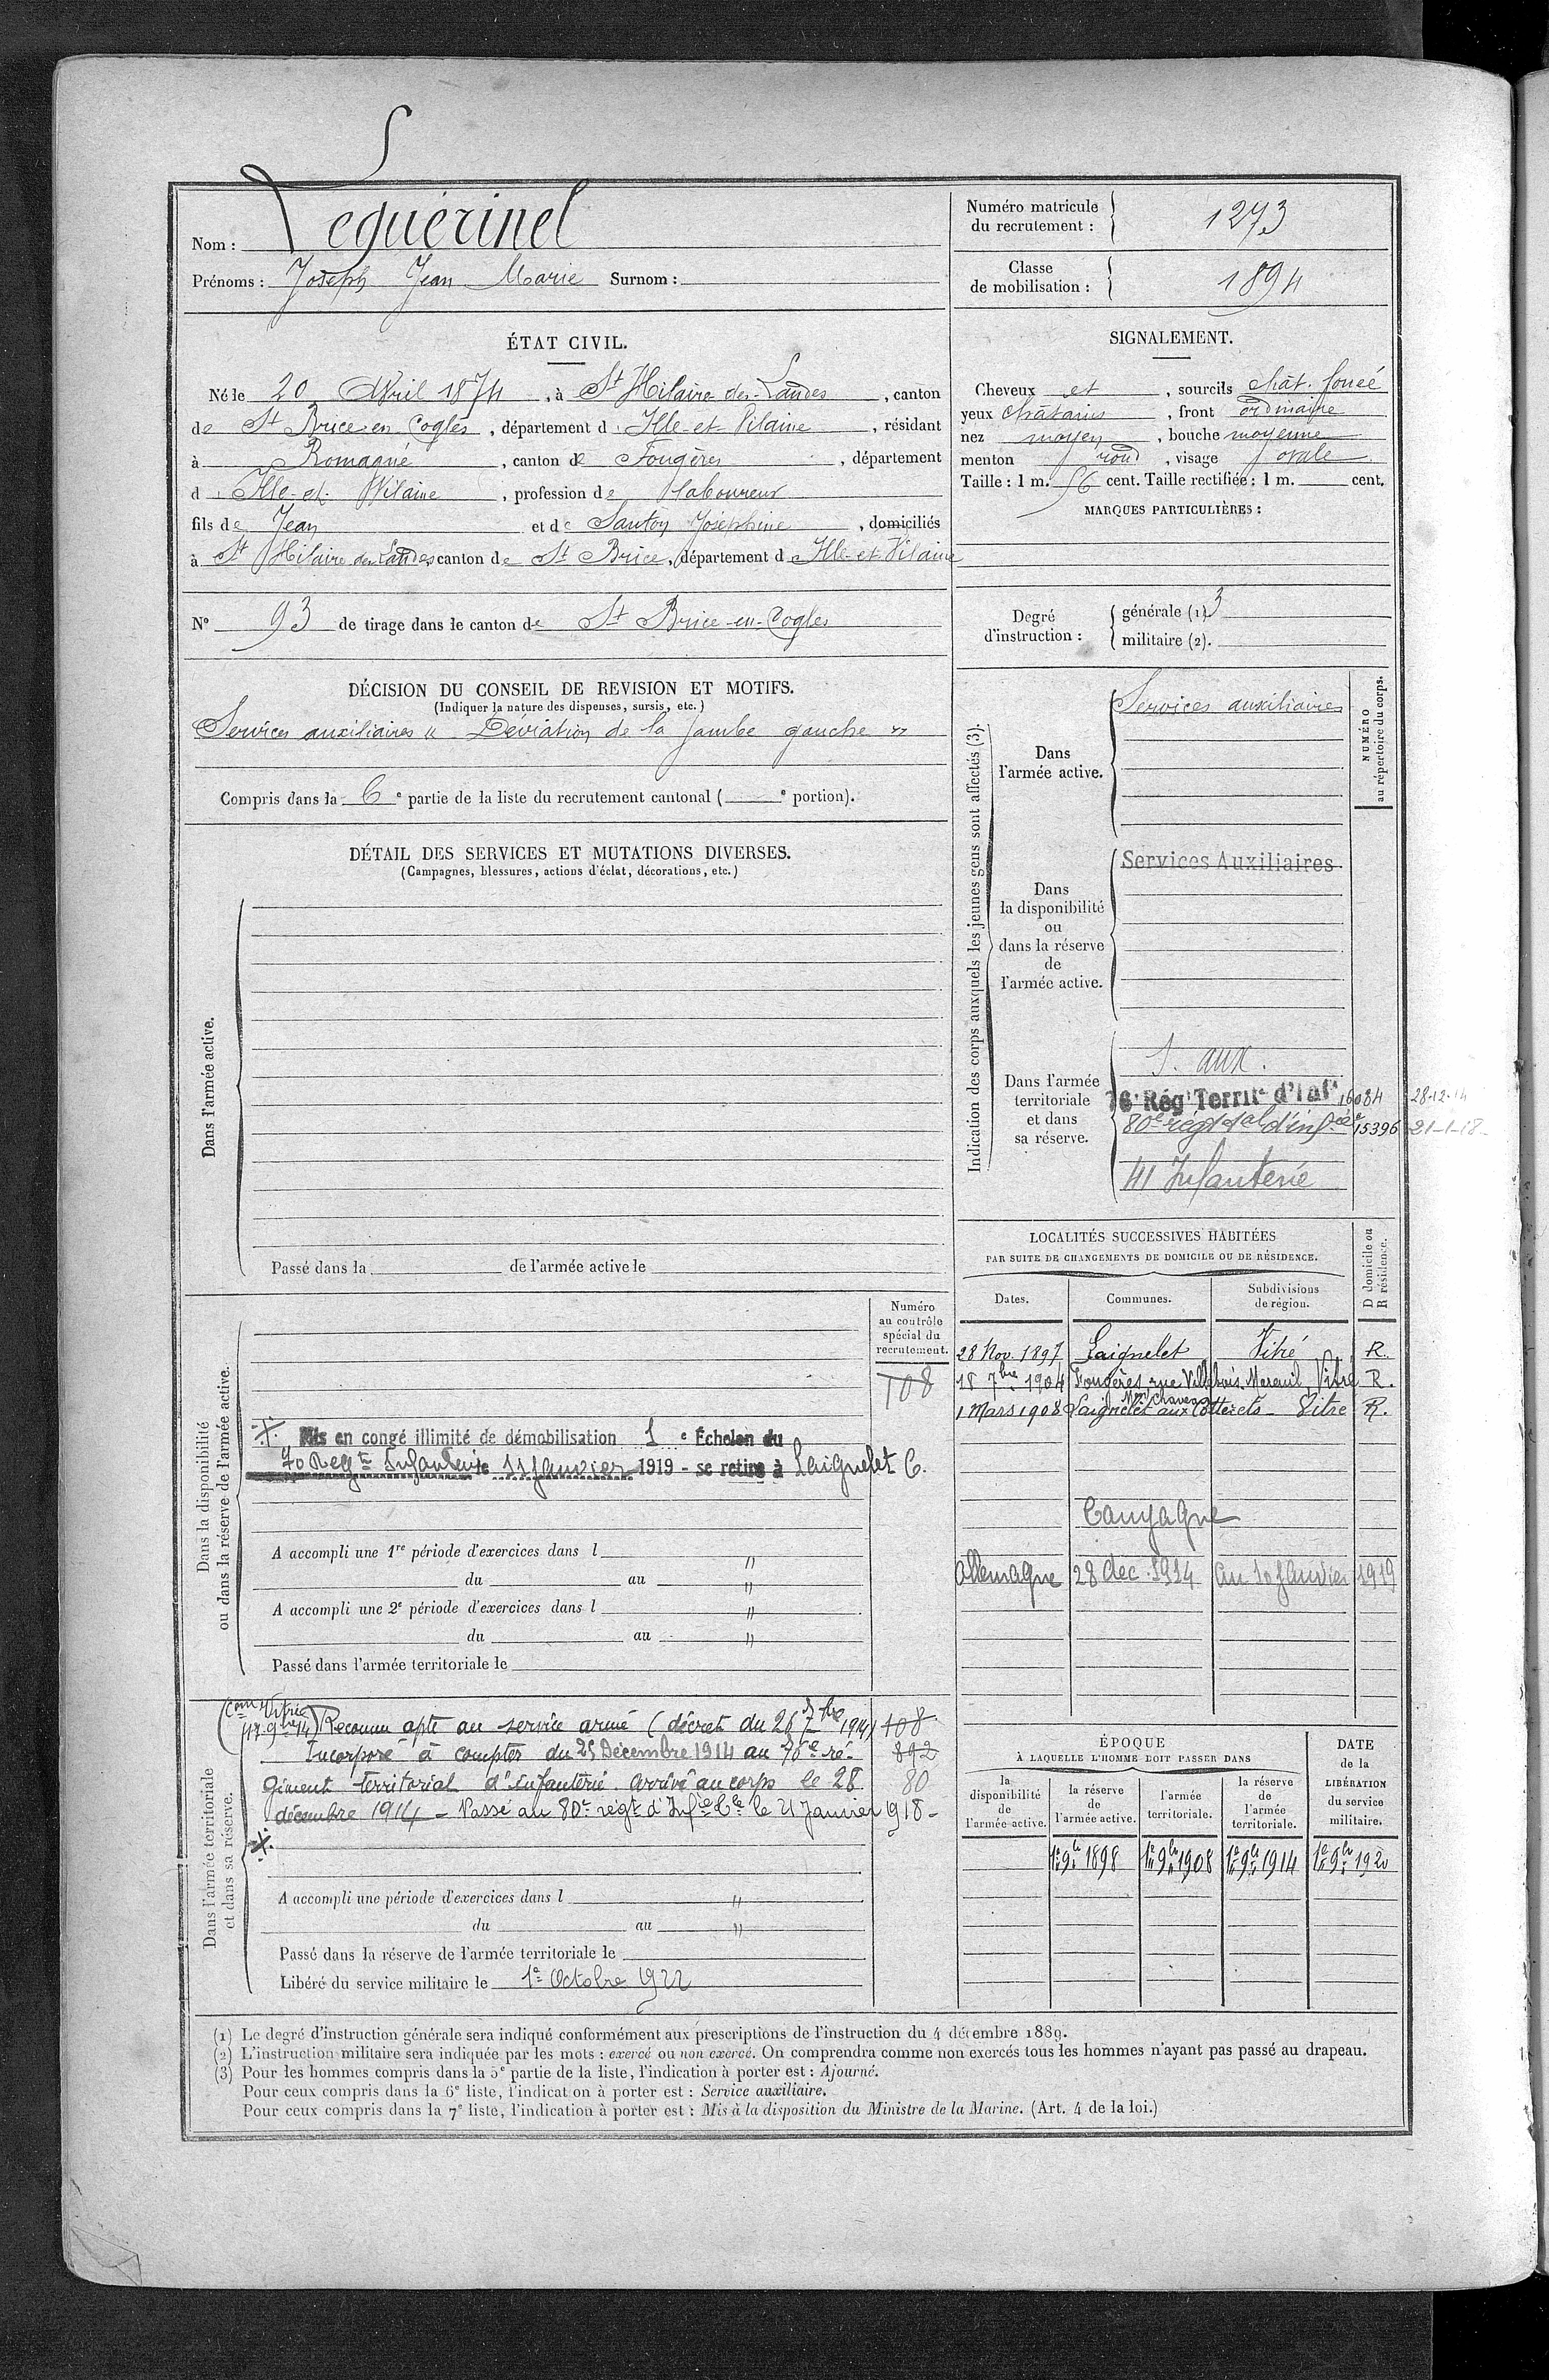 S
Nom : Leguérinel
Prénoms : Joseph Jean Marie Surnom :
Numéro matricule du recrutement : 1273
Classe de mobilisation : 1894
ÉTAT CIVIL.
Né le 20 Avril 1874, à St Hilaire des Landes, canton
de St Brice en Cogles, département d'Ille-et-Vilaine, résidant
à Romagné, canton de Fougères, département
d'Ille-et-Vilaine, profession de laboureur
fils de Jean et de Santoy Josephine, domiciliés
à St Hilaire des Landes canton de St Brice, département d'Ille-et-Vilaine
N° 93 de tirage dans le canton de St Brice-en-Cogles
SIGNALEMENT.
Cheveux et, sourcils chât. foncé
yeux châtains, front ordinaire
nez moyen, bouche moyenne
menton rond, visage ovale
Taille : 1 m. 56 cent. Taille rectifiée : 1 m. cent.
MARQUES PARTICULIÈRES :
Degré d'instruction :
générale (1) 3
militaire (2).
DÉCISION DU CONSEIL DE REVISION ET MOTIFS.
(Indiquer la nature des dispenses, sursis, etc.)
Services auxiliaires « Déviation de la jambe gauche »
Compris dans la 6e partie de la liste du recrutement cantonal ( e portion).
DÉTAIL DES SERVICES ET MUTATIONS DIVERSES.
(Campagnes, blessures, actions d'éclat, décorations, etc.)
Dans l'armée active.
Passé dans la de l'armée active le
Indication des corps auxquels les jeunes gens sont affectés (3).
NUMÉRO au répertoire du corps.
Dans
l'armée active.
Services auxiliaires
Dans
la disponibilité
ou
dans la réserve
de
l'armée active.
Services Auxiliaires
Dans l'armée
territoriale
et dans
sa réserve.
S. aux.
76e Régt Territ d'Infie 16084 28-12-14
80e régt tal d'infie 15396 21-1-18
41 Infanterie
LOCALITÉS SUCCESSIVES HABITÉES
PAR SUITE DE CHANGEMENTS DE DOMICILE OU DE RÉSIDENCE.
Dates. Communes. Subdivisions de région. D domicile ou R résidence.
28 Nov. 1897 Laignelet Vitré R.
18 7bre 1904 Fougères rue Villebois Mareuil Vitré R.
1 Mars 1908 Laignelet aux Cotterets Vitré R.
Campagne
Allemagne 28 dec. 1914 au 10 Janvier 1919
Dans la disponibilité
ou dans la réserve de l'armée active.
Numéro
au contrôle
spécial du
recrutement.
108
Mis en congé illimité de démobilisation 1e Échelon du
70 Regt Infanterie 11 Janvier 1919 - se retire à Laignelet C.
A accompli une 1re période d'exercices dans l "
du au "
A accompli une 2e période d'exercices dans l "
du au "
Passé dans l'armée territoriale le
Dans l'armée territoriale
et dans sa réserve.
(Com Vitré
17 9bre 14) Reconnu apte au service armé (décret du 26 7bre 1914) 108
Incorporé à compter du 25 Décembre 1914 au 76e ré- 892
giment territorial d'infanterie. Arrivé au corps le 28 80
décembre 1914 - Passé au 80e régt d'Infie tle le 21 Janvier 1918 -
A accompli une période d'exercices dans l "
du au "
Passé dans la réserve de l'armée territoriale le
Libéré du service militaire le 1er Octobre 1922
ÉPOQUE
À LAQUELLE L'HOMME DOIT PASSER DANS
la disponibilité de l'armée active.
la réserve de l'armée active.
l'armée territoriale.
la réserve de l'armée territoriale.
DATE de la LIBÉRATION du service militaire.
1er 9bre 1898 1er 9bre 1908 1er 9bre 1914 1er 9bre 1920
(1) Le degré d'instruction générale sera indiqué conformément aux prescriptions de l'instruction du 4 décembre 1889.
(2) L'instruction militaire sera indiquée par les mots : exercé ou non exercé. On comprendra comme non exercés tous les hommes n'ayant pas passé au drapeau.
(3) Pour les hommes compris dans la 5e partie de la liste, l'indication à porter est : Ajourné.
Pour ceux compris dans la 6e liste, l'indication à porter est : Service auxiliaire.
Pour ceux compris dans la 7e liste, l'indication à porter est : Mis à la disposition du Ministre de la Marine. (Art. 4 de la loi.)